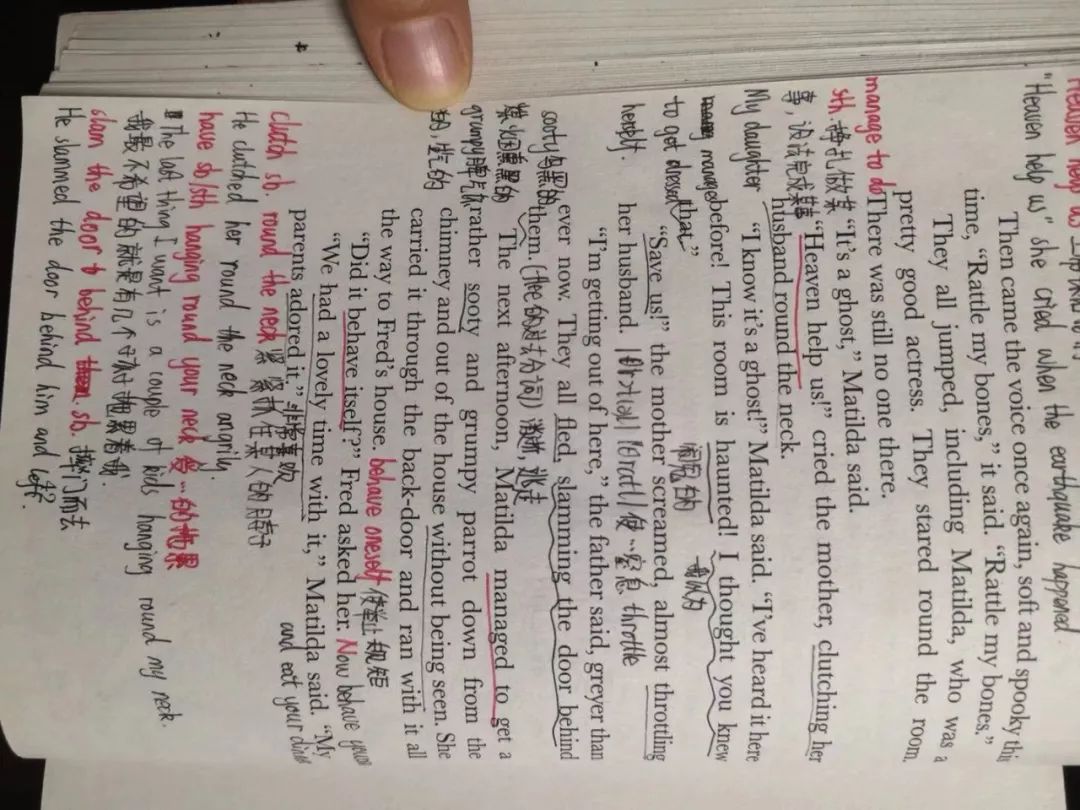 Heaven help us
"Heaven help us" she cried when the earthquake happened.
Then came the voice once again, soft and spooky this
time, “Rattle my bones,” it said. “Rattle my bones.”
They all jumped, including Matilda, who was a
pretty good actress. They stared round the room.
manage to do There was still no one there.
sth. 挣扎做某 “It's a ghost,” Matilda said.
事, 设法完成某事 “Heaven help us!” cried the mother, clutching her
husband round the neck.
My daughter “I know it's a ghost!” Matilda said. “I've heard it here
manage before! This room is haunted! I thought you knew
to get dressed that.” 闹鬼的 我以为
herself. “Save us!” the mother screamed, almost throttling
her husband. 使…窒息 throttle
“I'm getting out of here,” the father said, greyer than
sooty 乌黑的 ever now. They all fled, slamming the door behind
煤烟熏黑的 them. (flee的过去分词) 消逝, 逃走
The next afternoon, Matilda managed to get a
grumpy 脾气 rather sooty and grumpy parrot down from the
chimney and out of the house without being seen. She
carried it through the back-door and ran with it all
the way to Fred's house. behave oneself 使举止规矩
“Did it behave itself?” Fred asked her. Now behave your
“We had a lovely time with it,” Matilda said. “My
and eat your dinn
parents adored it.” 非常喜欢
clutch sb. round the neck 紧紧抓住某人的脖子
He clutched her round the neck angrily.
have sb/sth hanging round your neck 受…的拖累
The last thing I want is a couple of kids hanging round my neck.
我最不希望的就是有几个孩子拖累着我.
slam the door behind sb. 摔门而去
He slammed the door behind him and left.